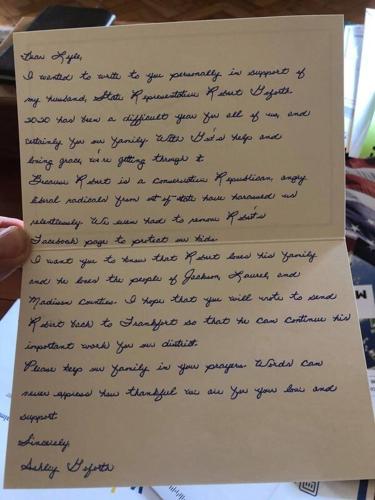 Dear Kyle,
I wanted to write to you personally in support of
my husband, State Representative Robert Goforth.
2020 has been a difficult year for all of us, and
certainly for our family. With God's help and
loving grace, we're getting through it.
Because Robert is a conservative Republican, angry
liberal radicals from out-of-state have harassed us
relentlessly. We even had to remove Robert's
Facebook page to protect our kids.
I want you to know that Robert loves his family
and he loves the people of Jackson, Laurel, and
Madison Counties. I hope that you will vote to send
Robert back to Frankfort so that he can continue his
important work for our district.
Please keep our family in your prayers. Words can
never express how thankful we are for your love and
support.
Sincerely,
Ashley Goforth